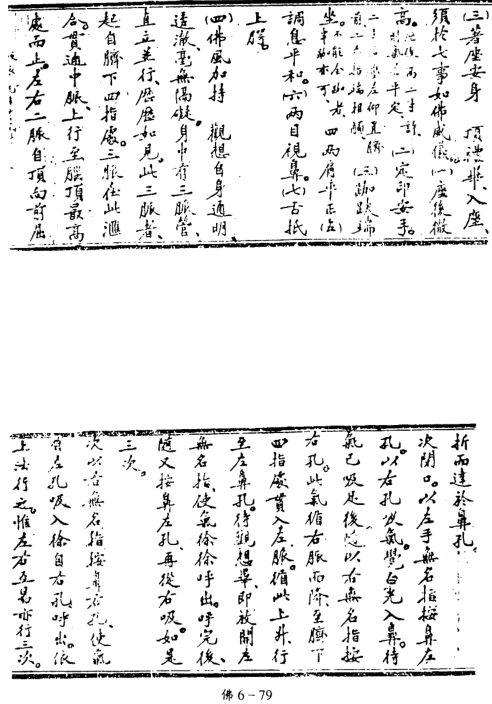 (三)著座安身　頂禮畢、入座、
須於七事如佛威儀。(一)座後微
高。　　　二寸許、(二)定印安手。
　　　　　左仰　臍
　　　指端相觸　(三)跏趺端
坐。不能全跏者、半跏亦可、(四)兩肩平正(五)
調息平和。(六)兩目視鼻(七)舌抵
上腭。
(四)佛風加持　觀想自身通明
透澈、毫無隔礙。身中有三脈管、
直立並行、歷歷如見。此三脈者、
起自臍下四指處。三脈在此滙
合。貫通中脈、上行至腦頂最高
處而上。左右二脈自頂向前屈
折而達於鼻孔。
次閉口。以左手無名指按鼻左
孔。以右孔放氣。覺白光入鼻。待
氣已吸足後、隨以右無名指按
右孔。此氣循右脈而降、至臍下
四指處貫入左脈。循此上升、行
至左鼻孔。待觀想畢、即放開左
無名指、使氣徐徐呼出。呼完後、
隨又按鼻左孔、再從右吸。如是
三次。
次以右無名指按鼻右孔、使氣
自左孔吸入徐自右孔呼出。依
上法行之。惟左右互易亦行三次。
佛6－79